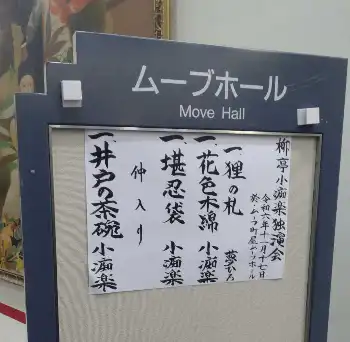 ムーブホール
Move Hall
柳亭小痴楽独演会
令和六年十一月十七日
於 ムーブ町屋ムーブホール
一、狸の札 夢ひろ
一、花色木綿 小痴楽
一、堪忍袋 小痴楽
仲入り
一、井戸の茶碗 小痴楽